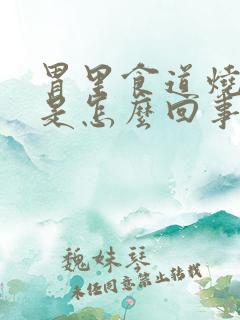 胃里食道燒
是怎麼回事
魏妹琴
未经同意禁止转载